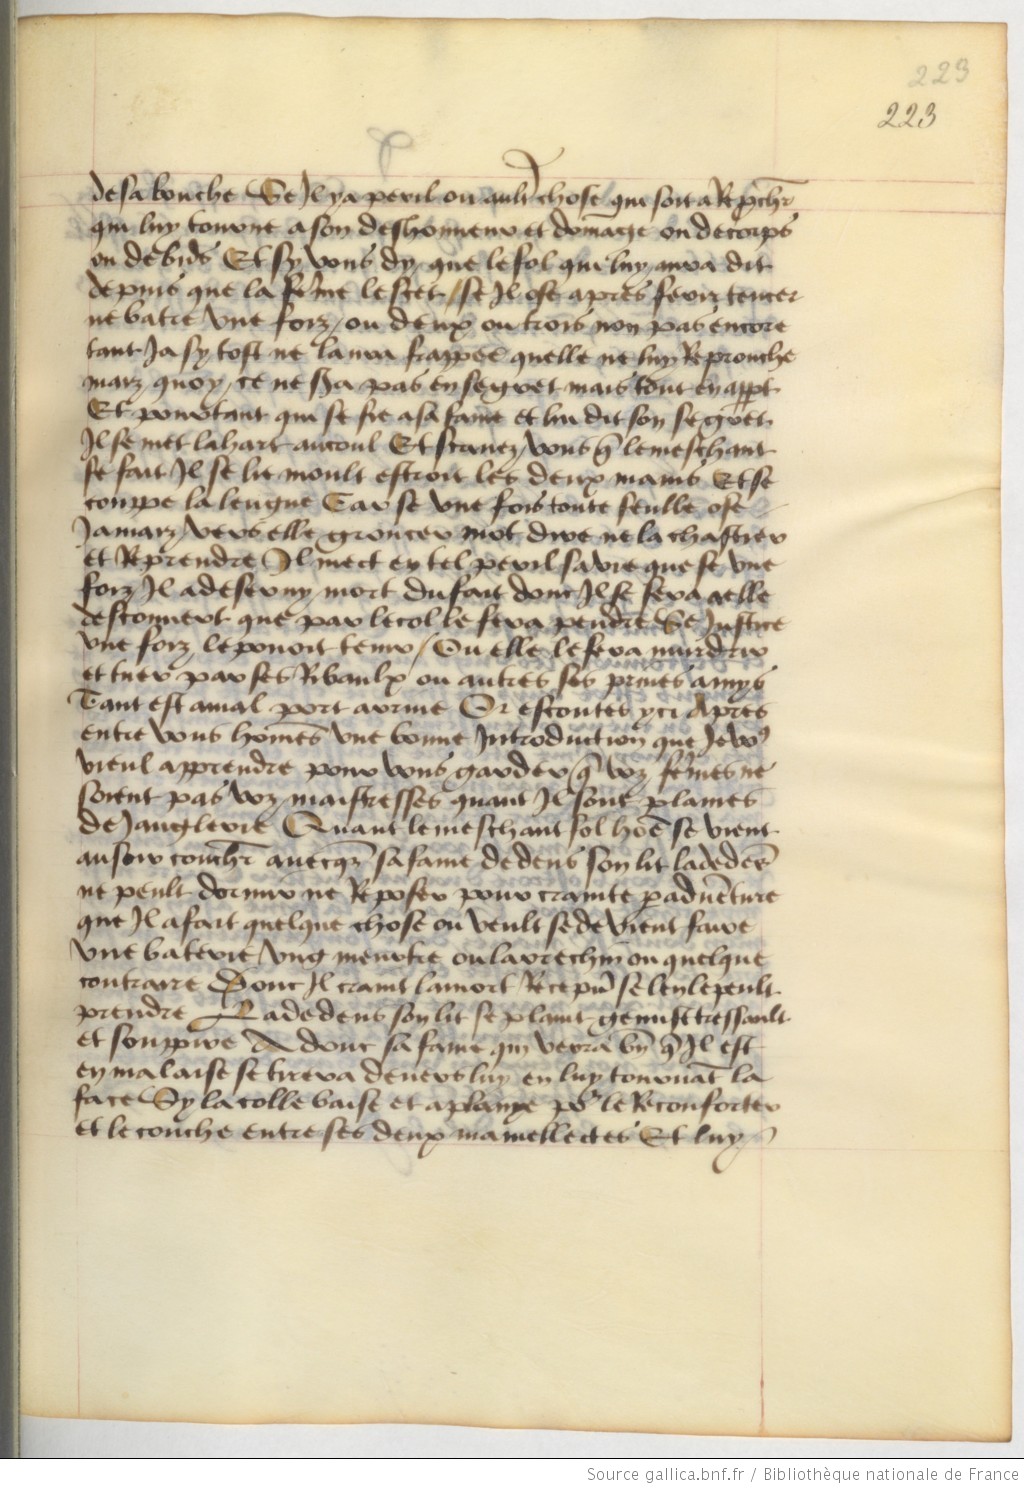 223
223
de sa bouche Se Il y a peril ou aultr̄ chose qui soit a Rep̄chr̄
qui luy tourne a son deshonneur et dōmage ou de corps
ou de biēs Et sy vous dy que le fol qui luy aura dit
depuis que la fēme le scet / se Il ose apres ferir tencer
ne batre vne foiz / ou deux ou trois non pas encore
tant Ja sy tost ne laura frappee quelle ne luy Reprouche
maiz quoy / ce ne sa pas en segret mais tout en appt
Et pourtant qui se fie a sa fame et lui dit son segret
Il se met la hart au coul Et scauez vous q̄ le meschant
se fait Il se lie moult estroit les deux mains Et se
couppe la leugue Car se vne fois toute seulle ose
Jamaiz vers elle groncer mot dire ne la chastier
et Reprendre Il mect en tel peril sa vie que se vne
foiz Il a deseruy mort du fait dont Il se sera a elle
descouuert que par le col le fera pendre Se Justice
vne foiz le pouoit tenir / Ou elle le fera murdrir
et tuer par ses Ribaulx ou autres ses priues amys
Tant est a mal port arriue Or escoutes yci Apres
entre vous homēs vne bonne Introduction que Je vo9
vieul apprendre pour vous garder q̄ voz fēmes ne
soient pas voz maistresses quant Il sont plaines
de Janglerie Quant le meschant fol hōe se vient
au soir couchr̄ auecqz sa fame dedens son lit la dedēs
ne peult dormir ne Reposer pour crainte p aduēture
que Il a fait quelque chose ou veult se devient faire
vne baterie vng meurtre ou larrechin ou quelque
contraire Donc Il craint la mort Recepuoir se len le peult
prendre La dedens son lit se plaint gemist tressault
et souppire Adonc sa fame qui verra bn̄ q̄ Il est
en malaise se tirera deuers luy en luy tournāt la
face Sy lacolle baise et aplanye po' le Reconforter
et le couche entre ses deux mamellectes Et luy
Source gallica.bnf.fr / Bibliothèque nationale de France